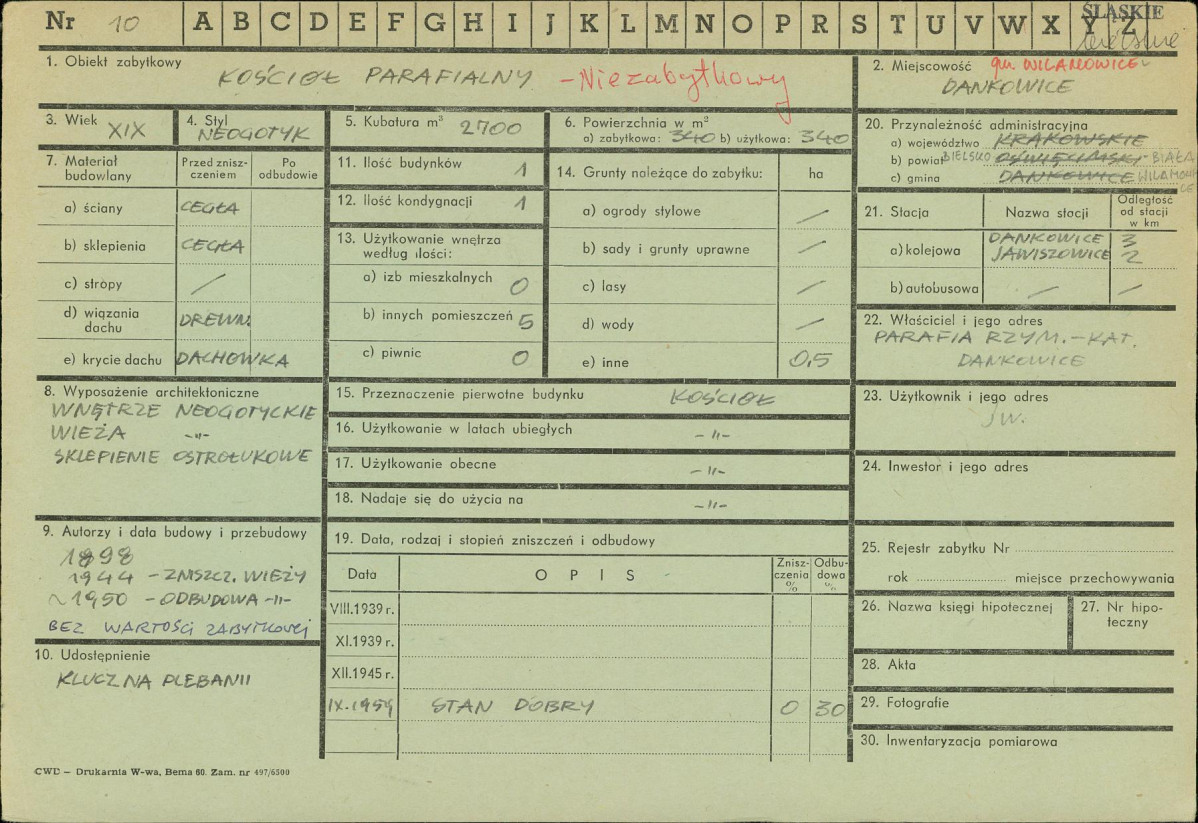 Nr 10 A B C D E F G H I J K L M N O P R S T U V W X Y Z
ŚLĄSKIE
bielskie
1. Obiekt zabytkowy
KOŚCIOŁ PARAFIALNY - Niezabytkowy
2. Miejscowość gm. WILAMOWICE
DANKOWICE
3. Wiek XIX
4. Styl NEOGOTYK
5. Kubatura m³ 2700
6. Powierzchnia w m²
a) zabytkowa: 340 b) użytkowa: 340
20. Przynależność administracyjna
a) województwo KRAKOWSKIE
b) powiat BIELSKO OŚWIĘCIMSKI - BIAŁA
c) gmina DANKOWICE WILAMOWICE
7. Materiał budowlany
Przed zniszczeniem
Po odbudowie
a) ściany CEGŁA
b) sklepienia CEGŁA
c) stropy /
d) wiązania dachu DREWN.
e) krycie dachu DACHOWKA
11. Ilość budynków 1
12. Ilość kondygnacji 1
13. Użytkowanie wnętrza
według ilości:
a) izb mieszkalnych 0
b) innych pomieszczeń 5
c) piwnic 0
14. Grunty należące do zabytku: ha
a) ogrody stylowe /
b) sady i grunty uprawne /
c) lasy /
d) wody /
e) inne 0,5
21. Stacja
Nazwa stacji
Odległość od stacji w km
a) kolejowa DANKOWICE 3
JAWISZOWICE 2
b) autobusowa / /
22. Właściciel i jego adres
PARAFIA RZYM.-KAT.
DANKOWICE
8. Wyposażenie architektoniczne
WNĘTRZE NEOGOTYCKIE
WIEŻA -"-
SKLEPIENIE OSTROŁUKOWE
15. Przeznaczenie pierwotne budynku KOŚCIOŁ
16. Użytkowanie w latach ubiegłych -"-
17. Użytkowanie obecne -"-
18. Nadaje się do użycia na -"-
23. Użytkownik i jego adres
JW.
24. Inwestor i jego adres
9. Autorzy i data budowy i przebudowy
1898
1944 - ZNISZCZ. WIEŻY
~1950 - ODBUDOWA -"-
BEZ WARTOŚCI ZABYTKOWEJ
10. Udostępnienie
KLUCZ NA PLEBANII
19. Data, rodzaj i stopień zniszczeń i odbudowy
Data
OPIS
Zniszczenia %
Odbudowa %
VIII.1939 r.
XI.1939 r.
XII.1945 r.
IX.1959 STAN DOBRY 0 30
25. Rejestr zabytku Nr
rok miejsce przechowywania
26. Nazwa księgi hipotecznej
27. Nr hipoteczny
28. Akta
29. Fotografie
30. Inwentaryzacja pomiarowa
CWD – Drukarnia W-wa, Bema 60. Zam. nr 497/6500